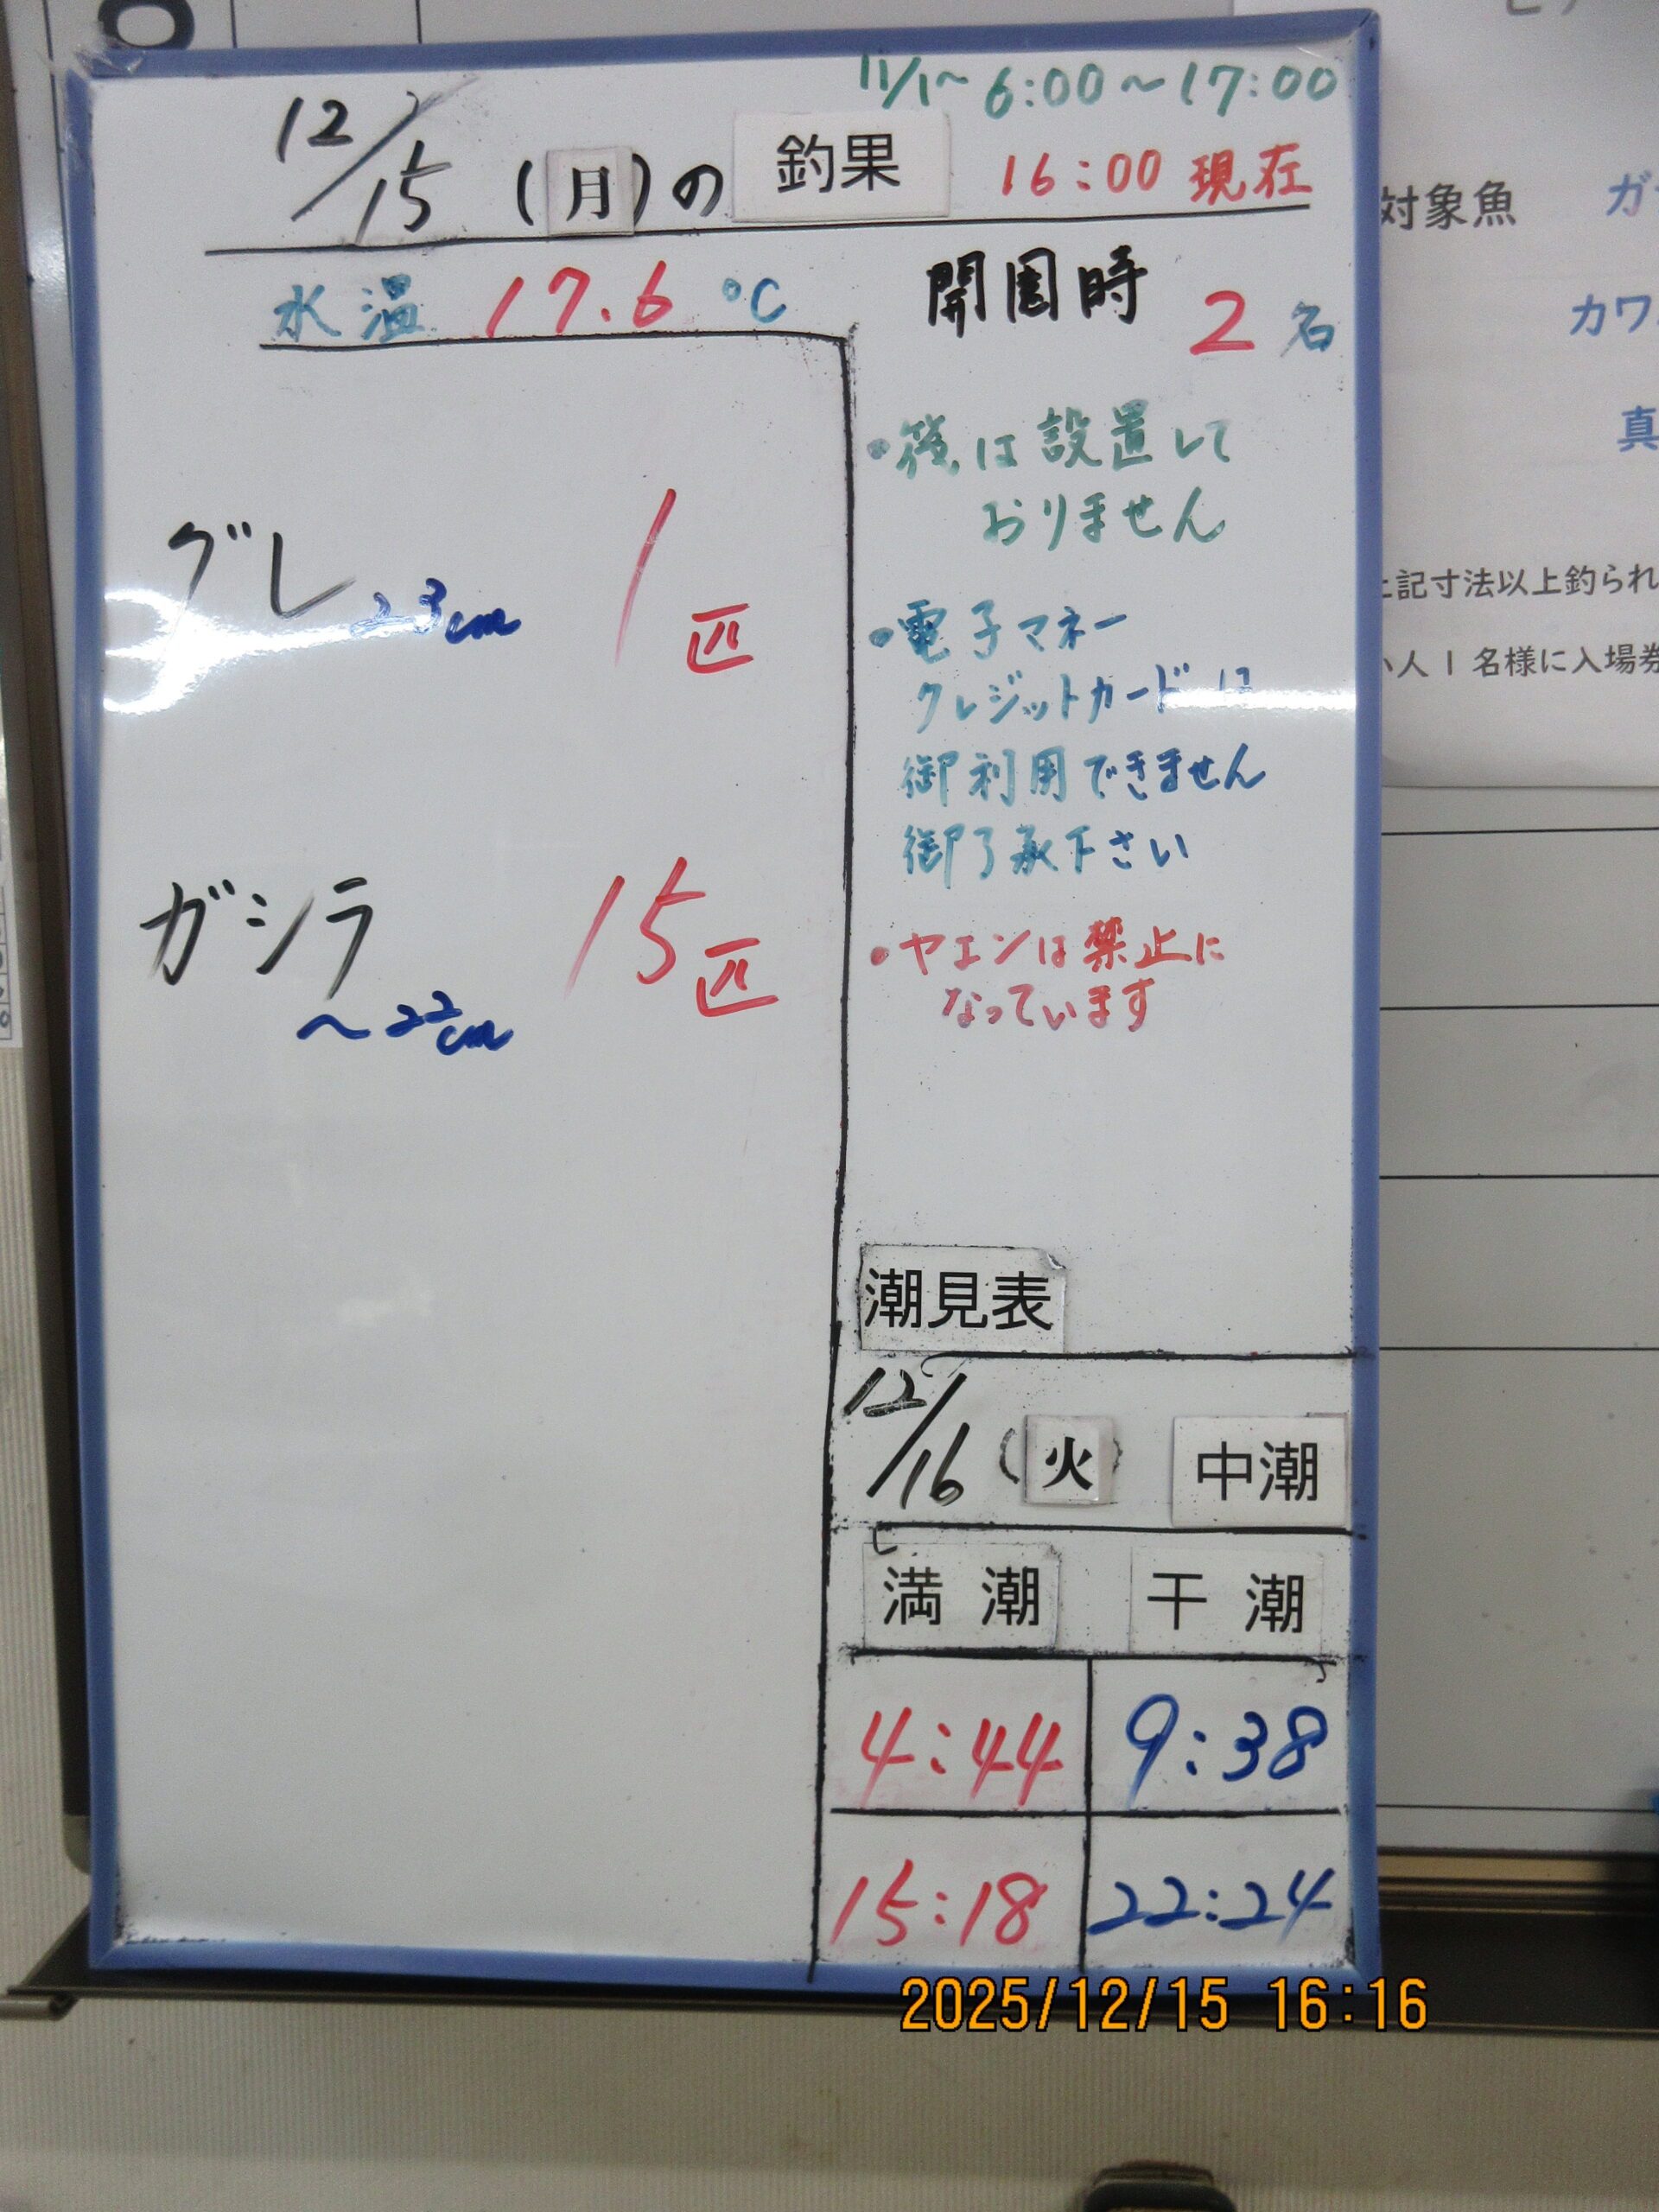 11/1~ 6:00~17:00
12/15 (月)の 釣果 16:00 現在
水温 17.6 ℃
開園時 2名
グレ 23cm 1匹
ガシラ ~22cm 15匹
・筏は設置して
おりません
・電子マネー
クレジットカードは
御利用できません
御了承下さい
・ヤエンは禁止に
なっています
潮見表
12/16 (火) 中潮
満潮 干潮
4:44 9:38
15:18 22:24
対象魚
カワ
真
記寸法以上釣られ
人1名様に入場券
2025/12/15 16:16